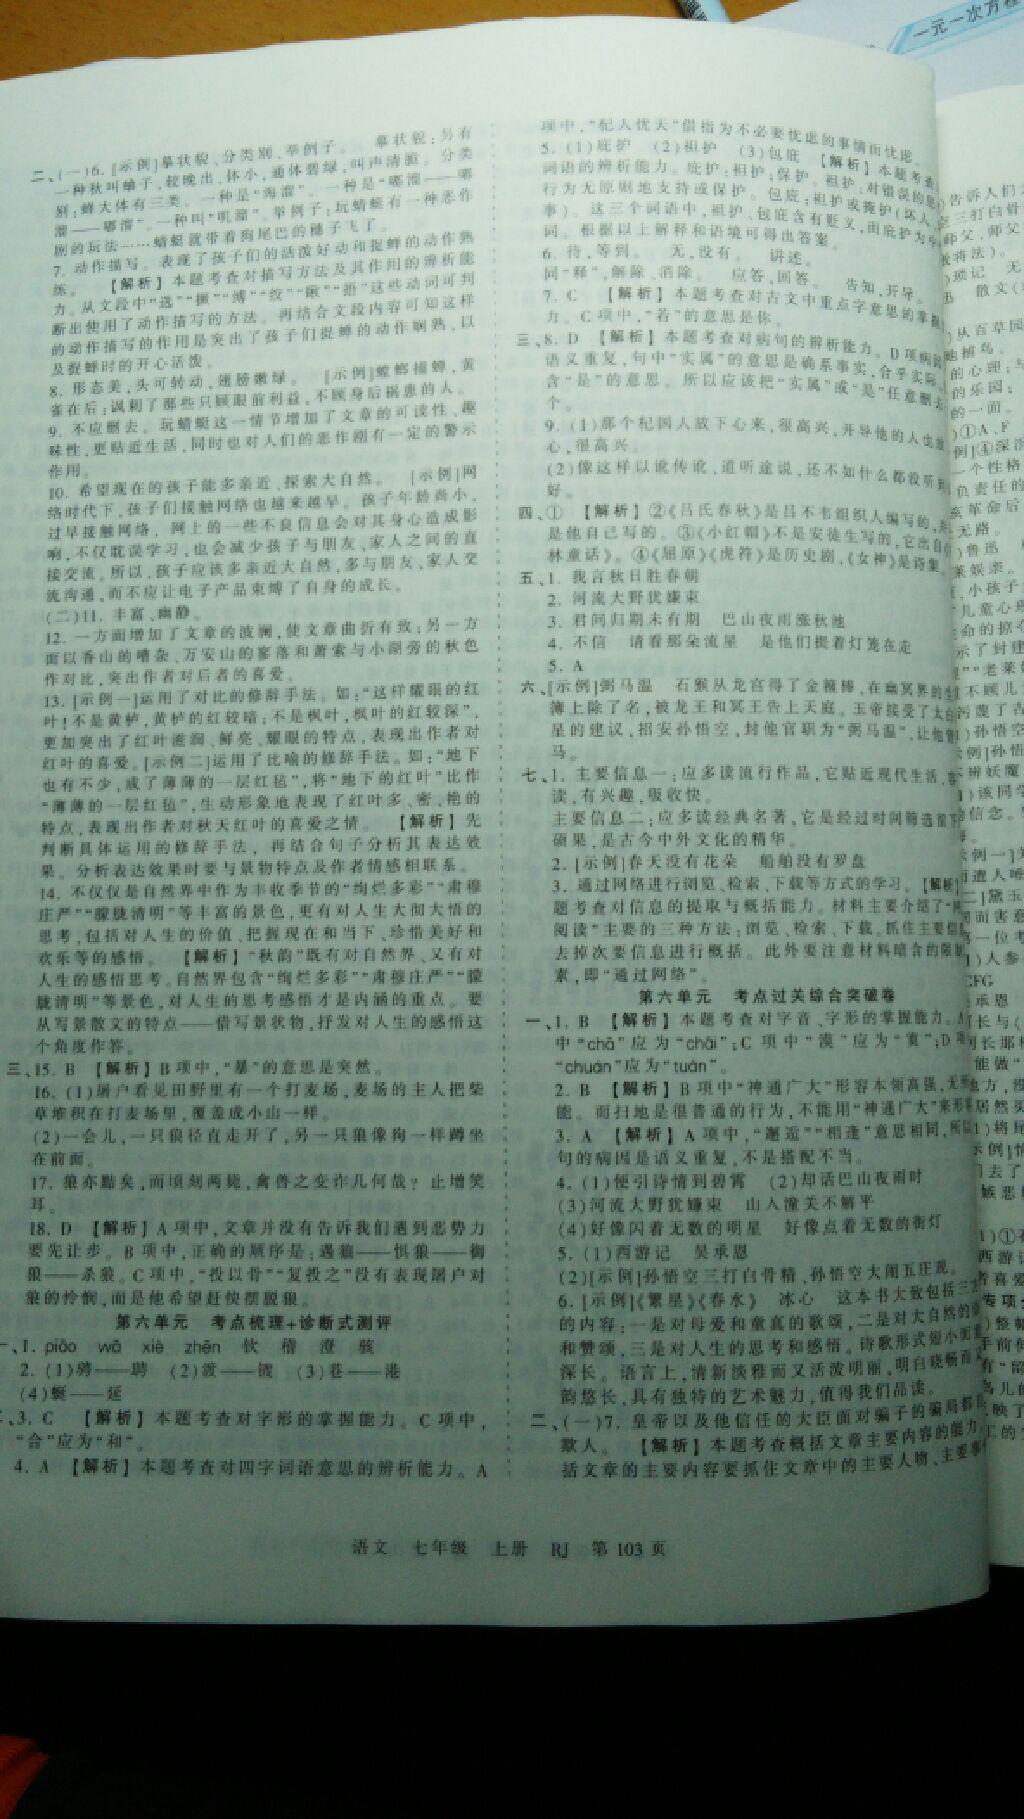 二、(一)6. [示例]摹状貌、分类别、举例子。 摹状貌:另有
一种秋叫蛐子,较晚出,体小,通体碧绿,叫声清脆。分类
别:蝉大体有三类。一种是“海溜”。一种是“嘟溜——嘟
溜——嘟溜”。一种叫“叽溜”。举例子:玩蜻蜓有一种恶作
剧的玩法……蜻蜓就带着狗尾巴的穗子飞了。
7. 动作描写。表现了孩子们的活泼好动和捉蝉的动作熟
练。 【解析】本题考查对描写方法及其作用的辨析能
力。从文段中“选”“撅”
断出使用了动作描写的方法。再结合文段内容可知这样
的动作描写的作用是突出了孩子们捉蝉的动作娴熟,以
及捉蝉时的开心活泼。
8. 形态美,头可转动,翅膀嫩绿。 [示例]螳螂捕蝉,黄
雀在后:讽刺了那些只顾眼前利益,不顾身后祸患的人。
9. 不应删去。玩蜻蜓这一情节增加了文章的可读性、趣
味性,更贴近生活,同时也对人们的恶作剧有一定的警示
作用。
10. 希望现在的孩子能多亲近、探索大自然。 [示例]网
络时代下,孩子们接触网络也越来越早。孩子年龄尚小,
过早接触网络, 网上的一些不良信息会对其身心造成影
响,不仅耽误学习,也会减少孩子与朋友、家人之间的直
接交流。所以,孩子应该多亲近大自然,多与朋友、家人交
流沟通,而不应让电子产品束缚了自身的成长。
(二)11. 丰富、幽静。
12. 一方面增加了文章的波澜,使文章曲折有致;另一方
面以香山的嘈杂、万安山的寥落和萧索与小湖旁的秋色
作对比,突出作者对后者的喜爱。
13. [示例一]运用了对比的修辞手法。如:“这样耀眼的红
叶!不是黄栌,黄栌的红较暗;不是枫叶,枫叶的红较深”,
更加突出了红叶滋润、鲜亮、耀眼的特点,表现出作者对
红叶的喜爱。[示例二]运用了比喻的修辞手法。如:“地下
也有不少,成了薄薄的一层红毡”,将“地下的红叶”比作
“薄薄的一层红毡”,生动形象地表现了红叶多、密、艳的
特点,表现出作者对秋天红叶的喜爱之情。 【解析】先
判断具体运用的修辞手法, 再结合句子分析其表达效
果。分析表达效果时要与景物特点及作者情感相联系。
14. 不仅仅是自然界中作为丰收季节的“绚烂多彩”“肃穆
庄严”“朦胧清明”等丰富的景色,更有对人生大彻大悟的
思考,包括对人生的价值、把握现在和当下、珍惜美好和
欢乐等的感悟。 【解析】“秋韵”既有对自然界、又有对
人生的感悟思考。自然界包含“绚烂多彩”“肃穆庄严”“朦
胧清明”等景色,对人生的思考感悟才是内涵的重点。要
从写景散文的特点——借写景状物,抒发对人生的感悟这
个角度作答。
三、15. B 【解析】B 项中,“暴”的意思是突然。
16. (1)屠户看见田野里有一个打麦场,麦场的主人把柴
草堆积在打麦场里,覆盖成小山一样。
(2)一会儿,一只狼径直走开了,另一只狼像狗一样蹲坐
在前面。
17. 狼亦黠矣,而顷刻两毙,禽兽之变诈几何哉?止增笑
耳。
18. D 【解析】A 项中,文章并没有告诉我们遇到恶势力
要先让步。B 项中,正确的顺序是:遇狼——惧狼——御
狼——杀狼。C 项中,“投以骨”“复投之”没有表现屠户对
狼的怜悯,而是他希望赶快摆脱狼。
第六单元 考点梳理+诊断式测评
一、1. piāo wā xiè zhēn 钦 稽 澄 骇
2. (1)骋——聘 (2)渡——镀 (3)巷——港
(4)蜒——延
二、3. C 【解析】本题考查对字形的掌握能力。C 项中,
“合”应为“和”。
4. A 【解析】本题考查对四字词语意思的辨析能力。A
项中,“杞人忧天”借指为不必要忧虑的事情而忧虑。
5. (1)庇护 (2)袒护 (3)包庇 【解析】本题考查
词语的辨析能力。庇护:袒护;保护。袒护:对错误的思
行为无原则地支持或保护。包庇:袒护或掩护(坏人、
事)。这三个词语中,袒护、包庇含有贬义,而庇护为中
词。根据以上解释和语境可得出答案。
6. 待,等到。 无,没有。 讲述。
同“释”,解除、消除。 应答,回答。 告知,开导。
7. C 【解析】本题考查对古文中重点字意思的掌握
力。C 项中,“若”的意思是你。
三、8. D 【解析】本题考查对病句的辨析能力。D 项病因
语义重复,句中“实属”的意思是确系事实,合乎实际,
含“是”的意思。所以应该把“实属”或“是”任意删去
个。
9. (1)那个杞国人放下心来,很高兴,开导他的人也放
心,很高兴。
(2)像这样以讹传讹,道听途说,还不如什么都没听到
好。
四、① 【解析】②《吕氏春秋》是吕不韦组织人编写的,并
是他自己写的。③《小红帽》不是安徒生写的,它出自
林童话》。④《屈原》《虎符》是历史剧,《女神》是诗集。
五、1. 我言秋日胜春朝
2. 河流大野犹嫌束
3. 君问归期未有期 巴山夜雨涨秋池
4. 不信 请看那朵流星 是他们提着灯笼在走
5. A
六、[示例]弼马温 石猴从龙宫得了金箍棒,在幽冥界的生
簿上除了名,被龙王和冥王告上天庭。玉帝接受了太白
星的建议,招安孙悟空,封他官职为“弼马温”,让他管
马。
七、1. 主要信息一:应多读流行作品,它贴近现代生活、容
读,有兴趣,吸收快。
主要信息二:应多读经典名著,它是经过时间筛选留下
硕果,是古今中外文化的精华。
2. [示例]春天没有花朵 船舶没有罗盘
3. 通过网络进行浏览、检索、下载等方式的学习。【解析】
题考查对信息的提取与概括能力。材料主要介绍了“网
阅读”主要的三种方法:浏览、检索、下载。抓住主要信息
去掉次要信息进行概括。此外要注意材料暗含的限制
素,即“通过网络”。
第六单元 考点过关综合突破卷
一、1. B 【解析】本题考查对字音、字形的掌握能力。A
中“chā”应为“chāi”;C 项中“漠”应为“寞”;D 项
“chuán”应为“tuán”。
2. B 【解析】B 项中“神通广大”形容本领高强,无所
能。而扫地是很普通的行为,不能用“神通广大”来形容
3. A 【解析】A 项中,“邂逅”“相逢”意思相同,所以
句的病因是语义重复,不是搭配不当。
4. (1)便引诗情到碧霄 (2)却话巴山夜雨时
(3)河流大野犹嫌束 山入潼关不解平
(4)好像闪着无数的明星 好像点着无数的街灯
5. (1)西游记 吴承恩
(2)[示例]孙悟空三打白骨精,孙悟空大闹五庄观。
6. [示例]《繁星》《春水》 冰心 这本书大致包括三方
的内容:一是对母爱和童真的歌颂,二是对大自然的崇
和赞颂,三是对人生的思考和感悟。诗歌形式短小而意
深长。语言上,清新淡雅而又活泼明丽,明白晓畅而又
韵悠长,具有独特的艺术魅力,值得我们品读。
二、(一)7. 皇帝以及他信任的大臣面对骗子的骗局都自
欺人。 【解析】本题考查概括文章主要内容的能力。
括文章的主要内容要抓住文章中的主要人物、主要事
语文 七年级 上册 RJ 第 103 页
一元一次方程